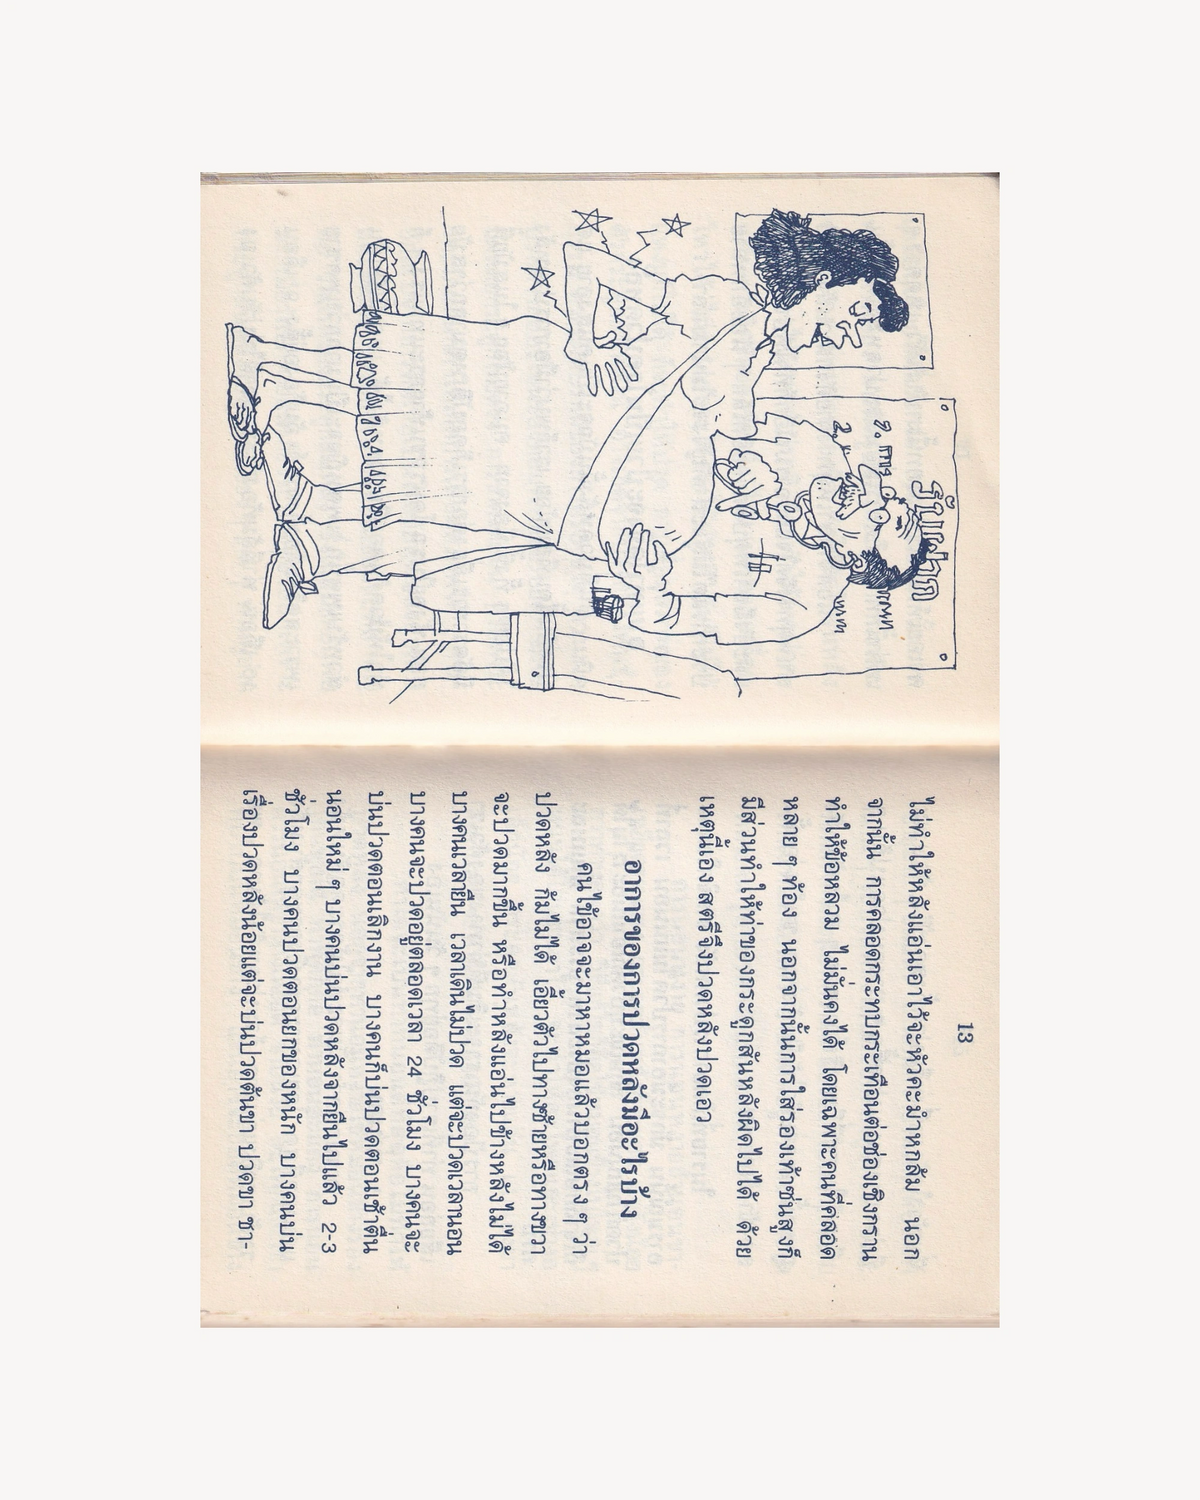 รับฝาก
1. การ
2.
13
ไม่ทำให้หลังแอ่นเอาไว้จะหัวคะมำหกล้ม นอก
จากนั้น การคลอดกระทบกระเทือนต่อช่องเชิงกราน
ทำให้ข้อหลวม ไม่มั่นคงได้ โดยเฉพาะคนที่คลอด
หลาย ๆ ท้อง นอกจากนั้นการใส่รองเท้าซ่นสูงก็
มีส่วนทำให้ท่าของกระดูกสันหลังผิดไปได้ ด้วย
เหตุนี้เอง สตรีจึงปวดหลังปวดเอว
อาการของการปวดหลังมีอะไรบ้าง
คนไข้อาจจะมาหาหมอแล้วบอกตรง ๆ ว่า
ปวดหลัง ก้มไม่ได้ เอี้ยวตัวไปทางซ้ายหรือทางขวา
จะปวดมากขึ้น หรือทำหลังแอ่นไปข้างหลังไม่ได้
บางคนเวลายืน เวลาเดินไม่ปวด แต่จะปวดเวลานอน
บางคนจะปวดอยู่ตลอดเวลา 24 ชั่วโมง บางคนจะ
บ่นปวดตอนเลิกงาน บางคนก็บ่นปวดตอนเช้าตื่น
นอนใหม่ ๆ บางคนบ่นปวดหลังจากยืนไปแล้ว 2-3
ชั่วโมง บางคนปวดตอนยกของหนัก บางคนบ่น
เรื่องปวดหลังน้อยแต่จะบ่นปวดต้นขา ปวดขา ชา-